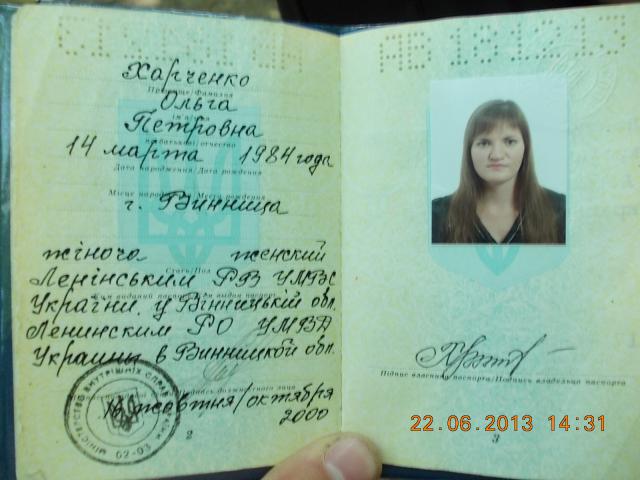 Харченко
Прізвище/Фамилия
Ольга
Петровна
по батькові/отчество
14 марта 1984 года
Дата народження/Дата рождения
Місце народження/Место рождения
г. Винница
жіноча женский
Стать/Пол
Ленінським РВ УМВС
України у Вінницькій обл.
Ким виданий паспорт/Кем выдан паспорт
Ленинским РО УМВД
Украины в Винницкой обл.
Подпись должностного лица
16 жовтня/октября
2000
МІНІСТЕРСТВО ВНУТРІШНІХ СПРАВ
02-03
2
АВ 181212
Підпис власника паспорта/Подпись владельца паспорта
22.06.2013 14:31
3